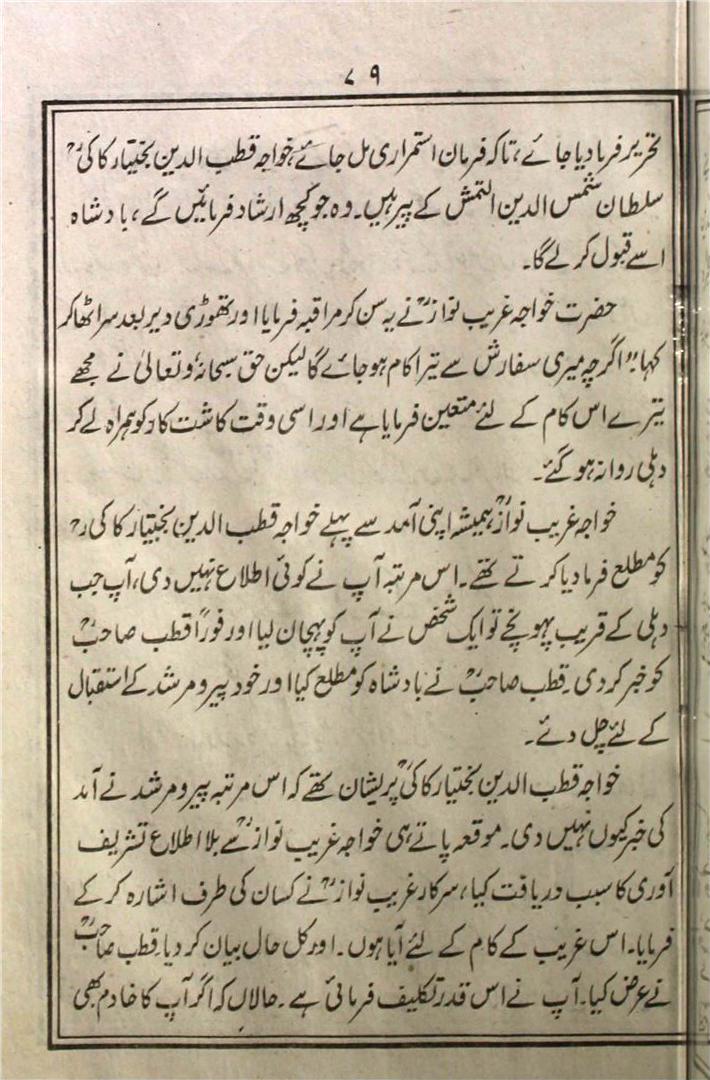 ۷۹
تحریر فرما دیا جائے، تاکہ فرمان استمراری مل جائے، خواجہ قطب الدین بختیار کاکیؒ
سلطان شمس الدین التمش کے پیر ہیں۔ وہ جو کچھ ارشاد فرمائیں گے، بادشاہ
اسے قبول کر لے گا۔
حضرت خواجہ غریب نوازؒ نے یہ سن کر مراقبہ فرمایا اور تھوڑی دیر بعد سر اٹھا کر
کہا:" اگرچہ میری سفارش سے تیرا کام ہو جائے گا لیکن حق سبحانہٗ وتعالیٰ نے مجھے
تیرے اس کام کے لئے متعین فرمایا ہے اور اسی وقت کاشت کار کو ہمراہ لے کر
دہلی روانہ ہو گئے۔
خواجہ غریب نوازؒ ہمیشہ اپنی آمد سے پہلے خواجہ قطب الدین بختیار کاکیؒ
کو مطلع فرما دیا کرتے تھے۔ اس مرتبہ آپ نے کوئی اطلاع نہیں دی، آپ جب
دہلی کے قریب پہونچے تو ایک شخص نے آپ کو پہچان لیا اور فوراً قطب صاحبؒ
کو خبر کر دی۔ قطب صاحبؒ نے بادشاہ کو مطلع کیا اور خود پیر و مرشد کے استقبال
کے لئے چل دئے۔
خواجہ قطب الدین بختیار کاکیؒ پریشان تھے کہ اس مرتبہ پیر و مرشد نے آمد
کی خبر کیوں نہیں دی۔ موقعہ پاتے ہی خواجہ غریب نوازؒ سے بلا اطلاع تشریف
آوری کا سبب دریافت کیا، سرکار غریب نوازؒ نے کسان کی طرف اشارہ کر کے
فرمایا۔ اس غریب کے کام کے لئے آیا ہوں۔ اور کل حال بیان کر دیا۔ قطب صاحبؒ
نے عرض کیا۔ آپ نے اس قدر تکلیف فرمائی ہے۔ حالاں کہ اگر آپ کا خادم بھی